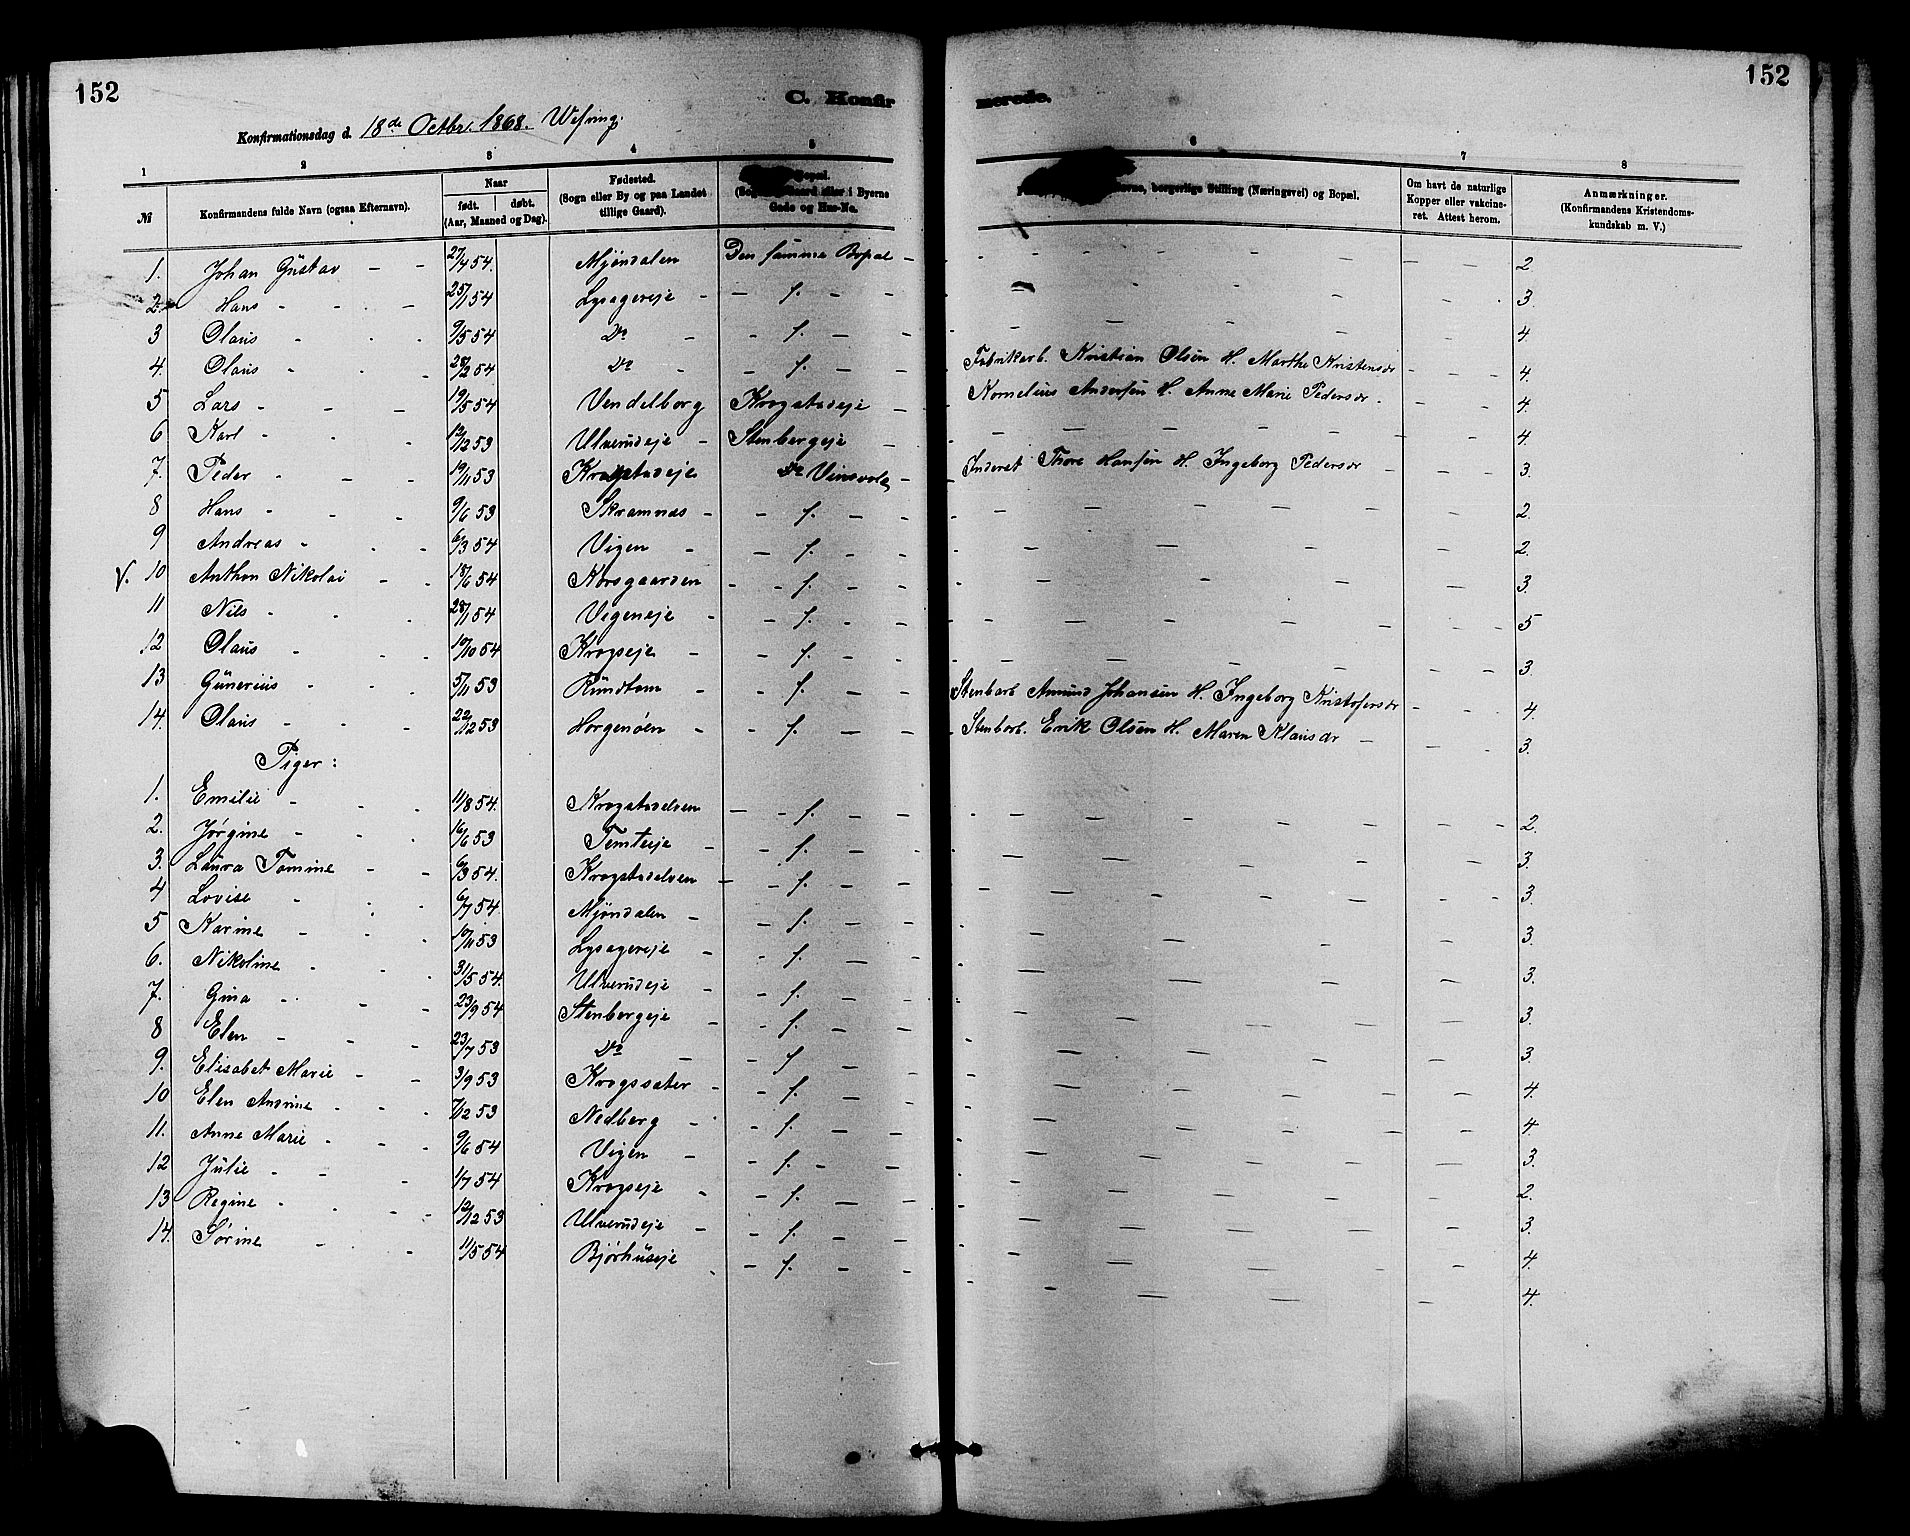 152
C. Konfir
merede.
152
Konfirmationsdag d. 18de Octbr. 1868.
1 2 3 4 5 6 7 8
№ Konfirmandens fulde Navn (ogsaa Efternavn). Naar født. døbt. (Aar, Maaned og Dag). Fødested. (Sogn eller By og paa Landet tillige Gaard). Bopæl. Gaard eller i Byerne Gade og Hus-No. borgerlige Stilling (Næringsvei) og Bopæl. Om havt de naturlige Kopper eller vakcineret. Attest herom. Anmærkninger. (Konfirmandens Kristendomskundskab m. V.)
1. Johan Güstav - - 27/4 54. Mjøndalen Den samme Bopæl - 2
2. Hans - - - 25/1 54 Lysagereje - - f. - - 3.
3 Olaüs - - - 9/5 54 Do - - f. - - 4.
4. Olaüs - - - 28/2 54 Do - - f. - - Fabrikarb. Kristian Olsen H. Marthe Kristensdr - - - 4.
5 Lars - - - 19/5 54 Vendelborg Krogstadeje - Kornelius Andersen H. Anne Marie Pedersdr. - - 4.
6 Karl - - - 12/12 53 Ulverudeje - Stenbergeje - 4.
7. Peder - - - 19/11 53 Krogstadeje Do Vinsvold - Inderst Thore Hansen H. Ingeborg Pedersdr - - - 3.
8 Hans - - - 9/6 53 Skramnæs - - f. - - 2.
9 Andreas - - - 6/3 54 Vigen - - f. - - 2.
V. 10 Anthon Nikolai - - 18/6 54 Korsgaarden - - f. - - 3.
11 Nils - - - 28/1 54 Vigeneje - - f. - - 5
12 Olaüs - - - 10/10 54 Krogseje - - f. - - 3.
13 Günerius - - - 5/11 53 Ründtom - - f. - - Stenarb Amund Johansen H. Ingeborg Kristofersdr - - - 4.
14. Olaüs - - - 22/12 53 Horgenøen - - f. - - Stenarb. Erik Olsen H. Maren Klausdr - - - 3.
Piger:
1. Emilie - - - 11/8 54. Krogstadelven - - f. - - 2.
2. Jørgine - - - 16/6 53 Temteje - - f. - - 3.
3. Laüra Tomine - - 6/3 54. Krogstadelven - - f. - - 3.
4 Lovise - - - 6/7 54 Mjøndalen - - f. - - 3.
5 Karine - - - 10/11 53 Lysagereje - - f. - - 3.
6. Nikoline - - - 31/5 54. Ulverudeje - - f. - - 3.
7. Gina - - - 23/9 54 Stenbergeje - - f. - - 3.
8 Elen - - - 23/7 53 Do - - f. - - 4.
9. Elisabet Marie - - 3/9 53 Krogssæter - - f. - - 4.
10 Elen Andrine - - - 7/12 53 Nedberg - - f. - - 3.
11. Anne Marie - - - 9/6 54 Vigen - - f. - - 2.
12 Jülie - - - 1/7 54 Krogseje - - f. - - 3.
13 Regine - - - 12/12 53 Ulverudeje - - f. - - 4.
14. Sørine - - 11/5 54 Bjørhüseje - - f. - - 4.